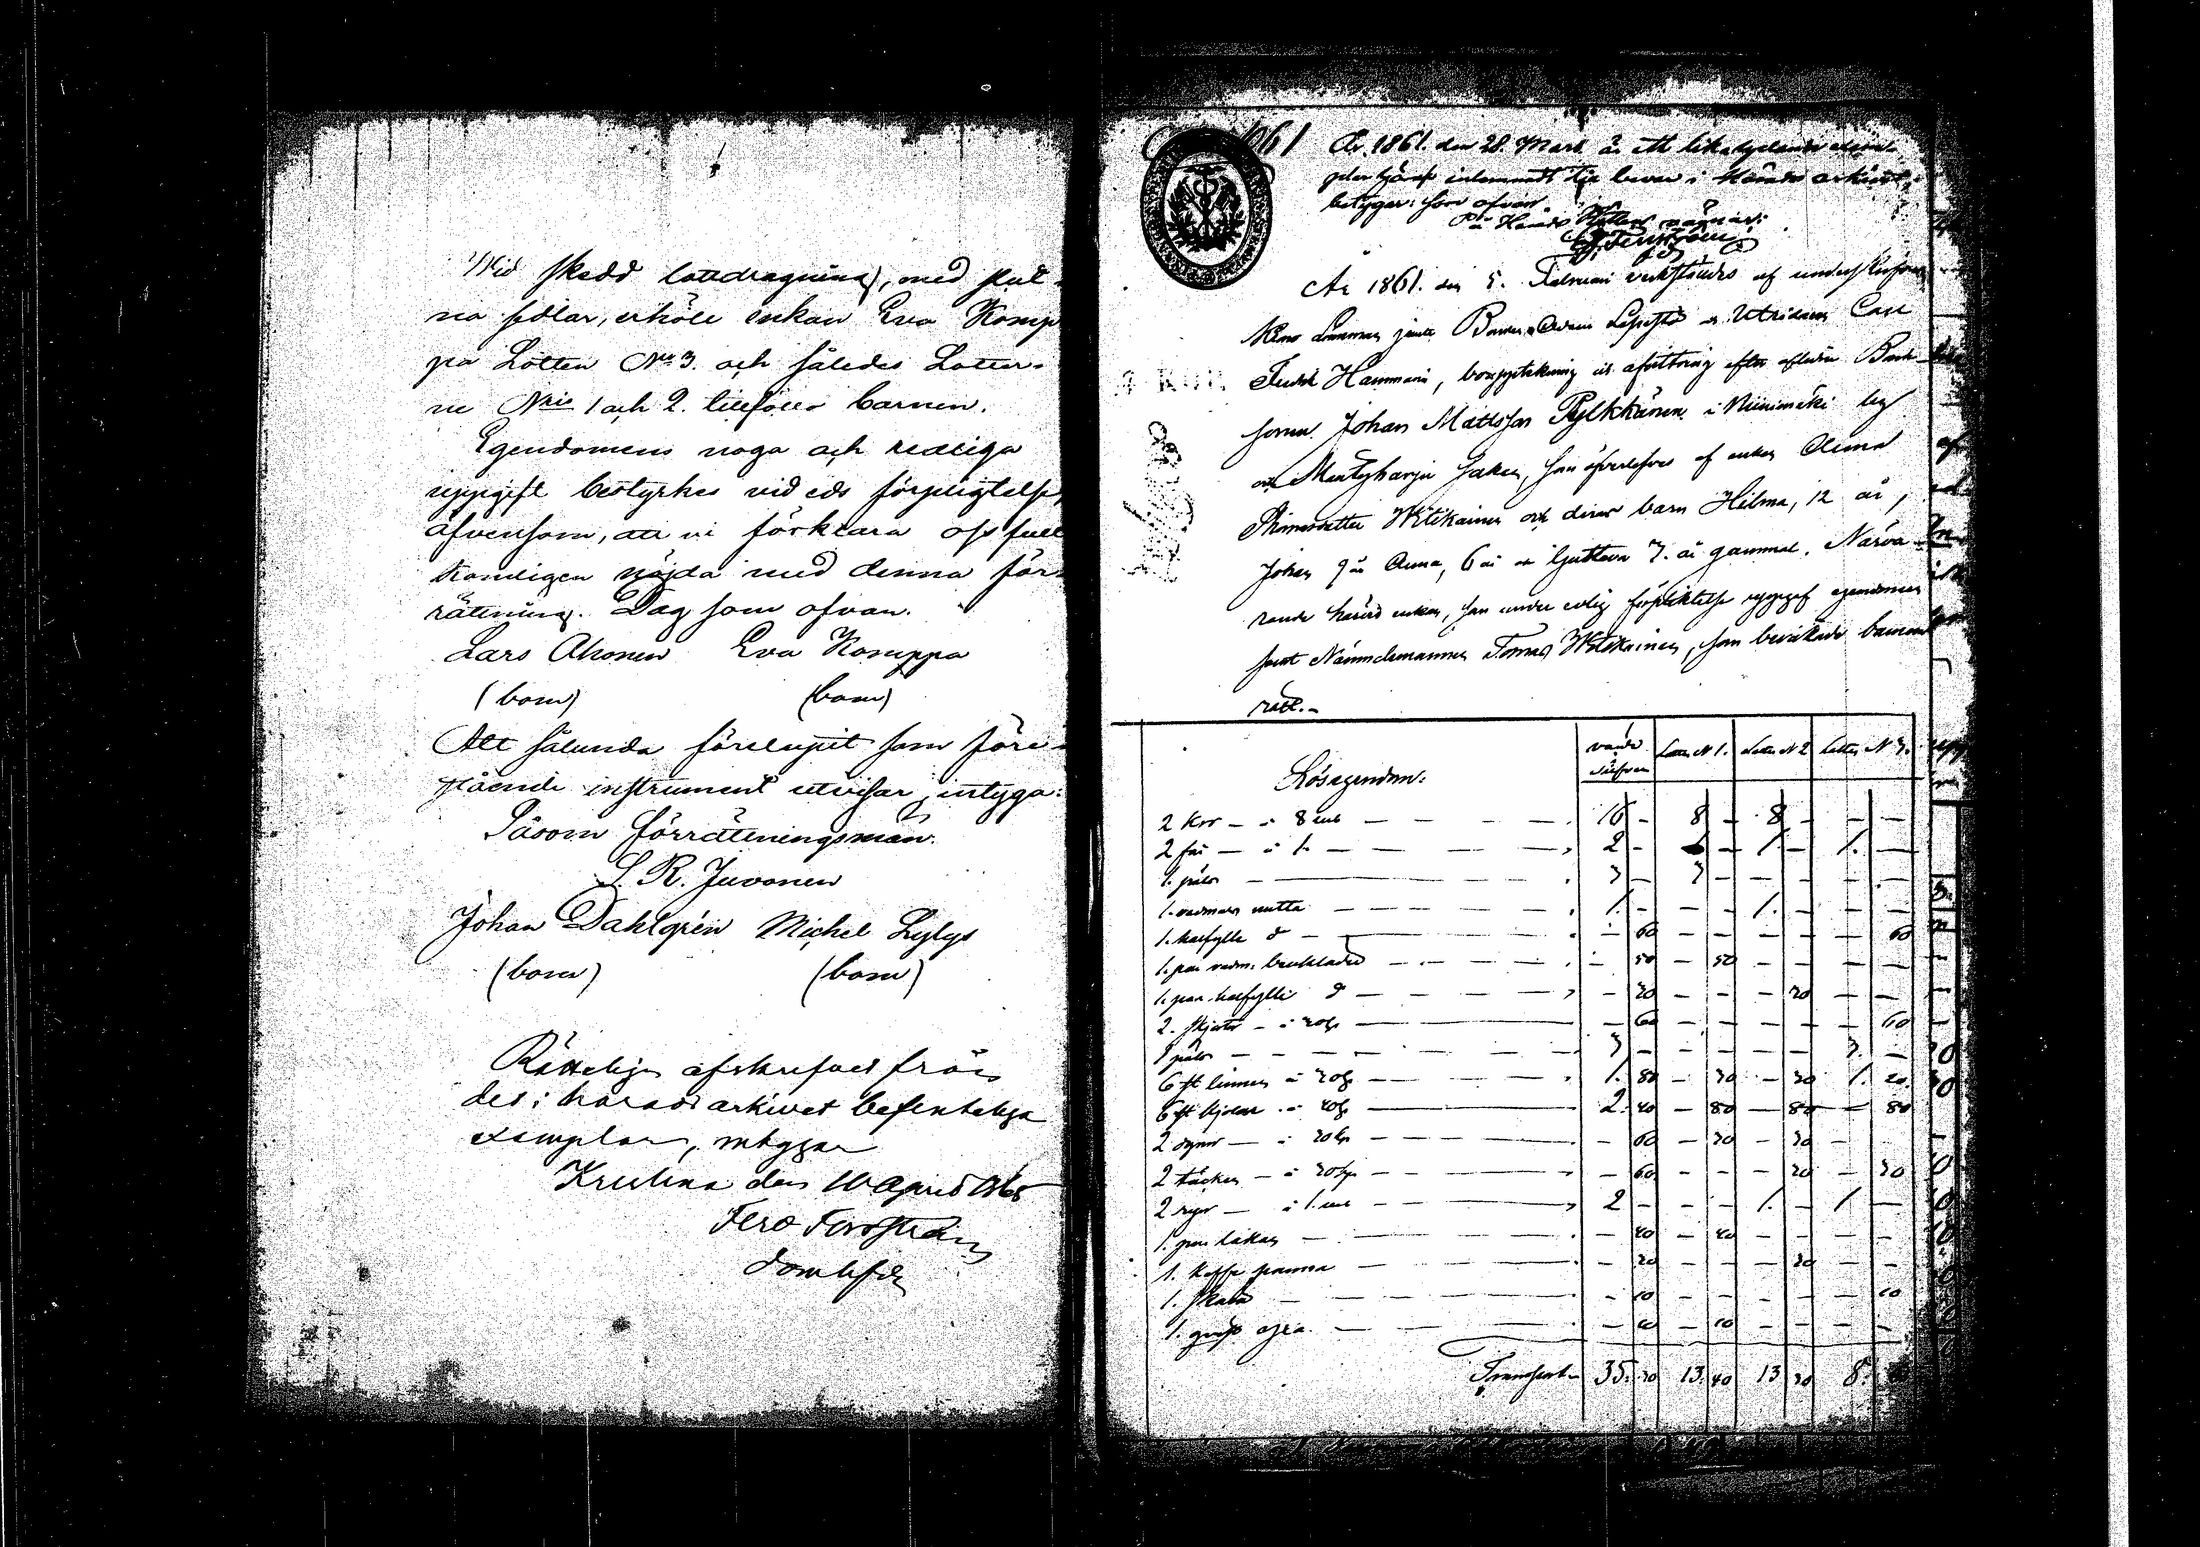 Wid skedd lottdragning, med slut-
na sedlar, erhöll enkan Eva Komp
pa Lotten No 3. och således Lotter-
ne Nris 1 och 2. tillföllo barnen.
Egendomens noga och redliga
uppgift bestyrkes vid eds förpligtelse,
äfvensom, att vi förklara oss full
komligen nöjda med denna för-
rättning. Dag som ofvan.
Lars Ahonen Eva Komppa
(bom) (bom)
Att sålunda förelupit som före-
stående instrument utvisar, intyga:
Såsom förrättningsmän.
S. R. Juvonen
Johan Dahlgrén Michel Lylys
(bom) (bom)
Rätteligen afskrifvet från
det i härads arkivet befinteliga
exemplar, intygar
Kristina den 10 April 1865
Domhfde
1861
År 1861. den 28. Mars, är ett likalydande exem-
plar häraf inlemnadt till bevar i Härads arkivet,
betygar: som ofvan
På Härads Rättens vägnar:
År 1861. den 5. Februari verkställdes af underskrifven
jemte Bonden och Utridaren Carl
Fredrik Hammarin, bouppteckning och afvittring efter aflidne Bonde
sonen Johan Mattsson Pylkkänen i Niinimäki by
och Mentyharju Socken, som öfverlefves af enkan Anna
Thomasdotter Witikainen och deras barn Hilma, 12 år,
Johan 9 år Anna, 6 år och Gustava 3. år gammal. Närva-
rande härvid enkan, som under edlig förpliktelse uppgaf egendomen
samt Nämndemannen Tomas Witikainen, som bevakade barnens
rätt.
Lösegendom. värde silfver Lotten N 1. Lotten N 2 Lotten N 3.
2 kor — à 8 rub — 16 – 8 – 8 – – –
2 får — à 1. — 2 – – 1. – 1. –
1. päls — 3 – 3 – – – – –
1. vadmals mutta — 1. – – – 1. – – –
1. halfylle d — – 60 – – – – – 60
1. par vadm. benkläder — – 50 – 50 – – – –
1. par halfylle d — – 30 – – – 30 – –
2. skjortor — à 30 k — – 60 – – – – – 60
1 päls — 3 – – – – – 3. –
6 st linnen à 30 k — 1. 80 – 30 – 30 1. 20
6 st kjolar à 40 k — 2. 40 – 80 – 80 – 80
2 dynor — à 30 k — – 60 – 30 – 30 – –
2 täcken — à 30 k — – 60 – – – 30 – 30
2 ryor — à 1. rub — 2 – – – 1. – 1 –
1. par lakan — – 40 – 40 – – – –
1. kaffe panna — – 30 – – – 30 – –
1. skåla — – 10 – – – – – 10
1. — – 10 – 10 – – – –
Transport 35. 30 13. 40 13 30 8.